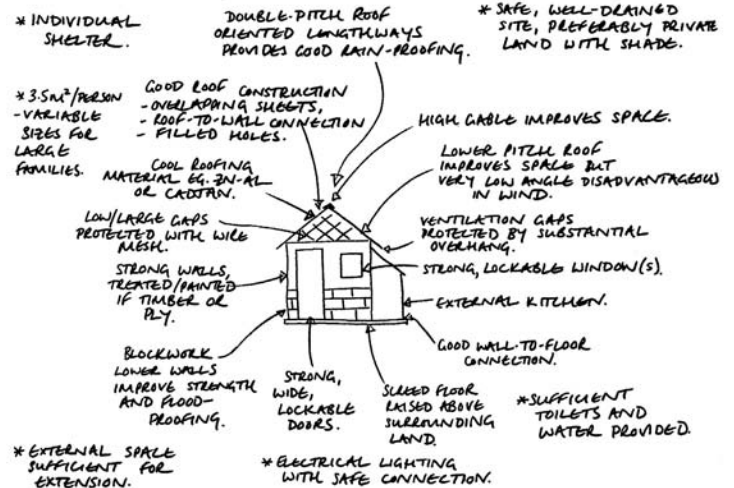 * INDIVIDUAL
SHELTER.
DOUBLE-PITCH ROOF
ORIENTED LENGTHWAYS
PROVIDES GOOD RAIN-PROOFING.
* SAFE, WELL-DRAINED
SITE, PREFERABLY PRIVATE
LAND WITH SHADE.
* 3.5m²/PERSON
- VARIABLE
SIZES FOR
LARGE
FAMILIES.
GOOD ROOF CONSTRUCTION
- OVERLAPPING SHEETS,
- ROOF-TO-WALL CONNECTION
- FILLED HOLES.
HIGH GABLE IMPROVES SPACE.
COOL ROOFING
MATERIAL EG. ZN-AL
OR CADJAN.
LOWER PITCH ROOF
IMPROVES SPACE BUT
VERY LOW ANGLE DISADVANTAGEOUS
IN WIND.
LOW/LARGE GAPS
PROTECTED WITH WIRE
MESH.
VENTILATION GAPS
PROTECTED BY SUBSTANTIAL
OVERHANG.
STRONG WALLS,
TREATED/PAINTED
IF TIMBER OR
PLY.
STRONG, LOCKABLE WINDOW(S).
EXTERNAL KITCHEN.
GOOD WALL-TO-FLOOR
CONNECTION.
BLOCKWORK
LOWER WALLS
IMPROVE STRENGTH
AND FLOOD-
PROOFING.
STRONG,
WIDE,
LOCKABLE
DOORS.
SCREED FLOOR
RAISED ABOVE
SURROUNDING
LAND.
* SUFFICIENT
TOILETS AND
WATER PROVIDED.
* EXTERNAL SPACE
SUFFICIENT FOR
EXTENSION.
* ELECTRICAL LIGHTING
WITH SAFE CONNECTION.